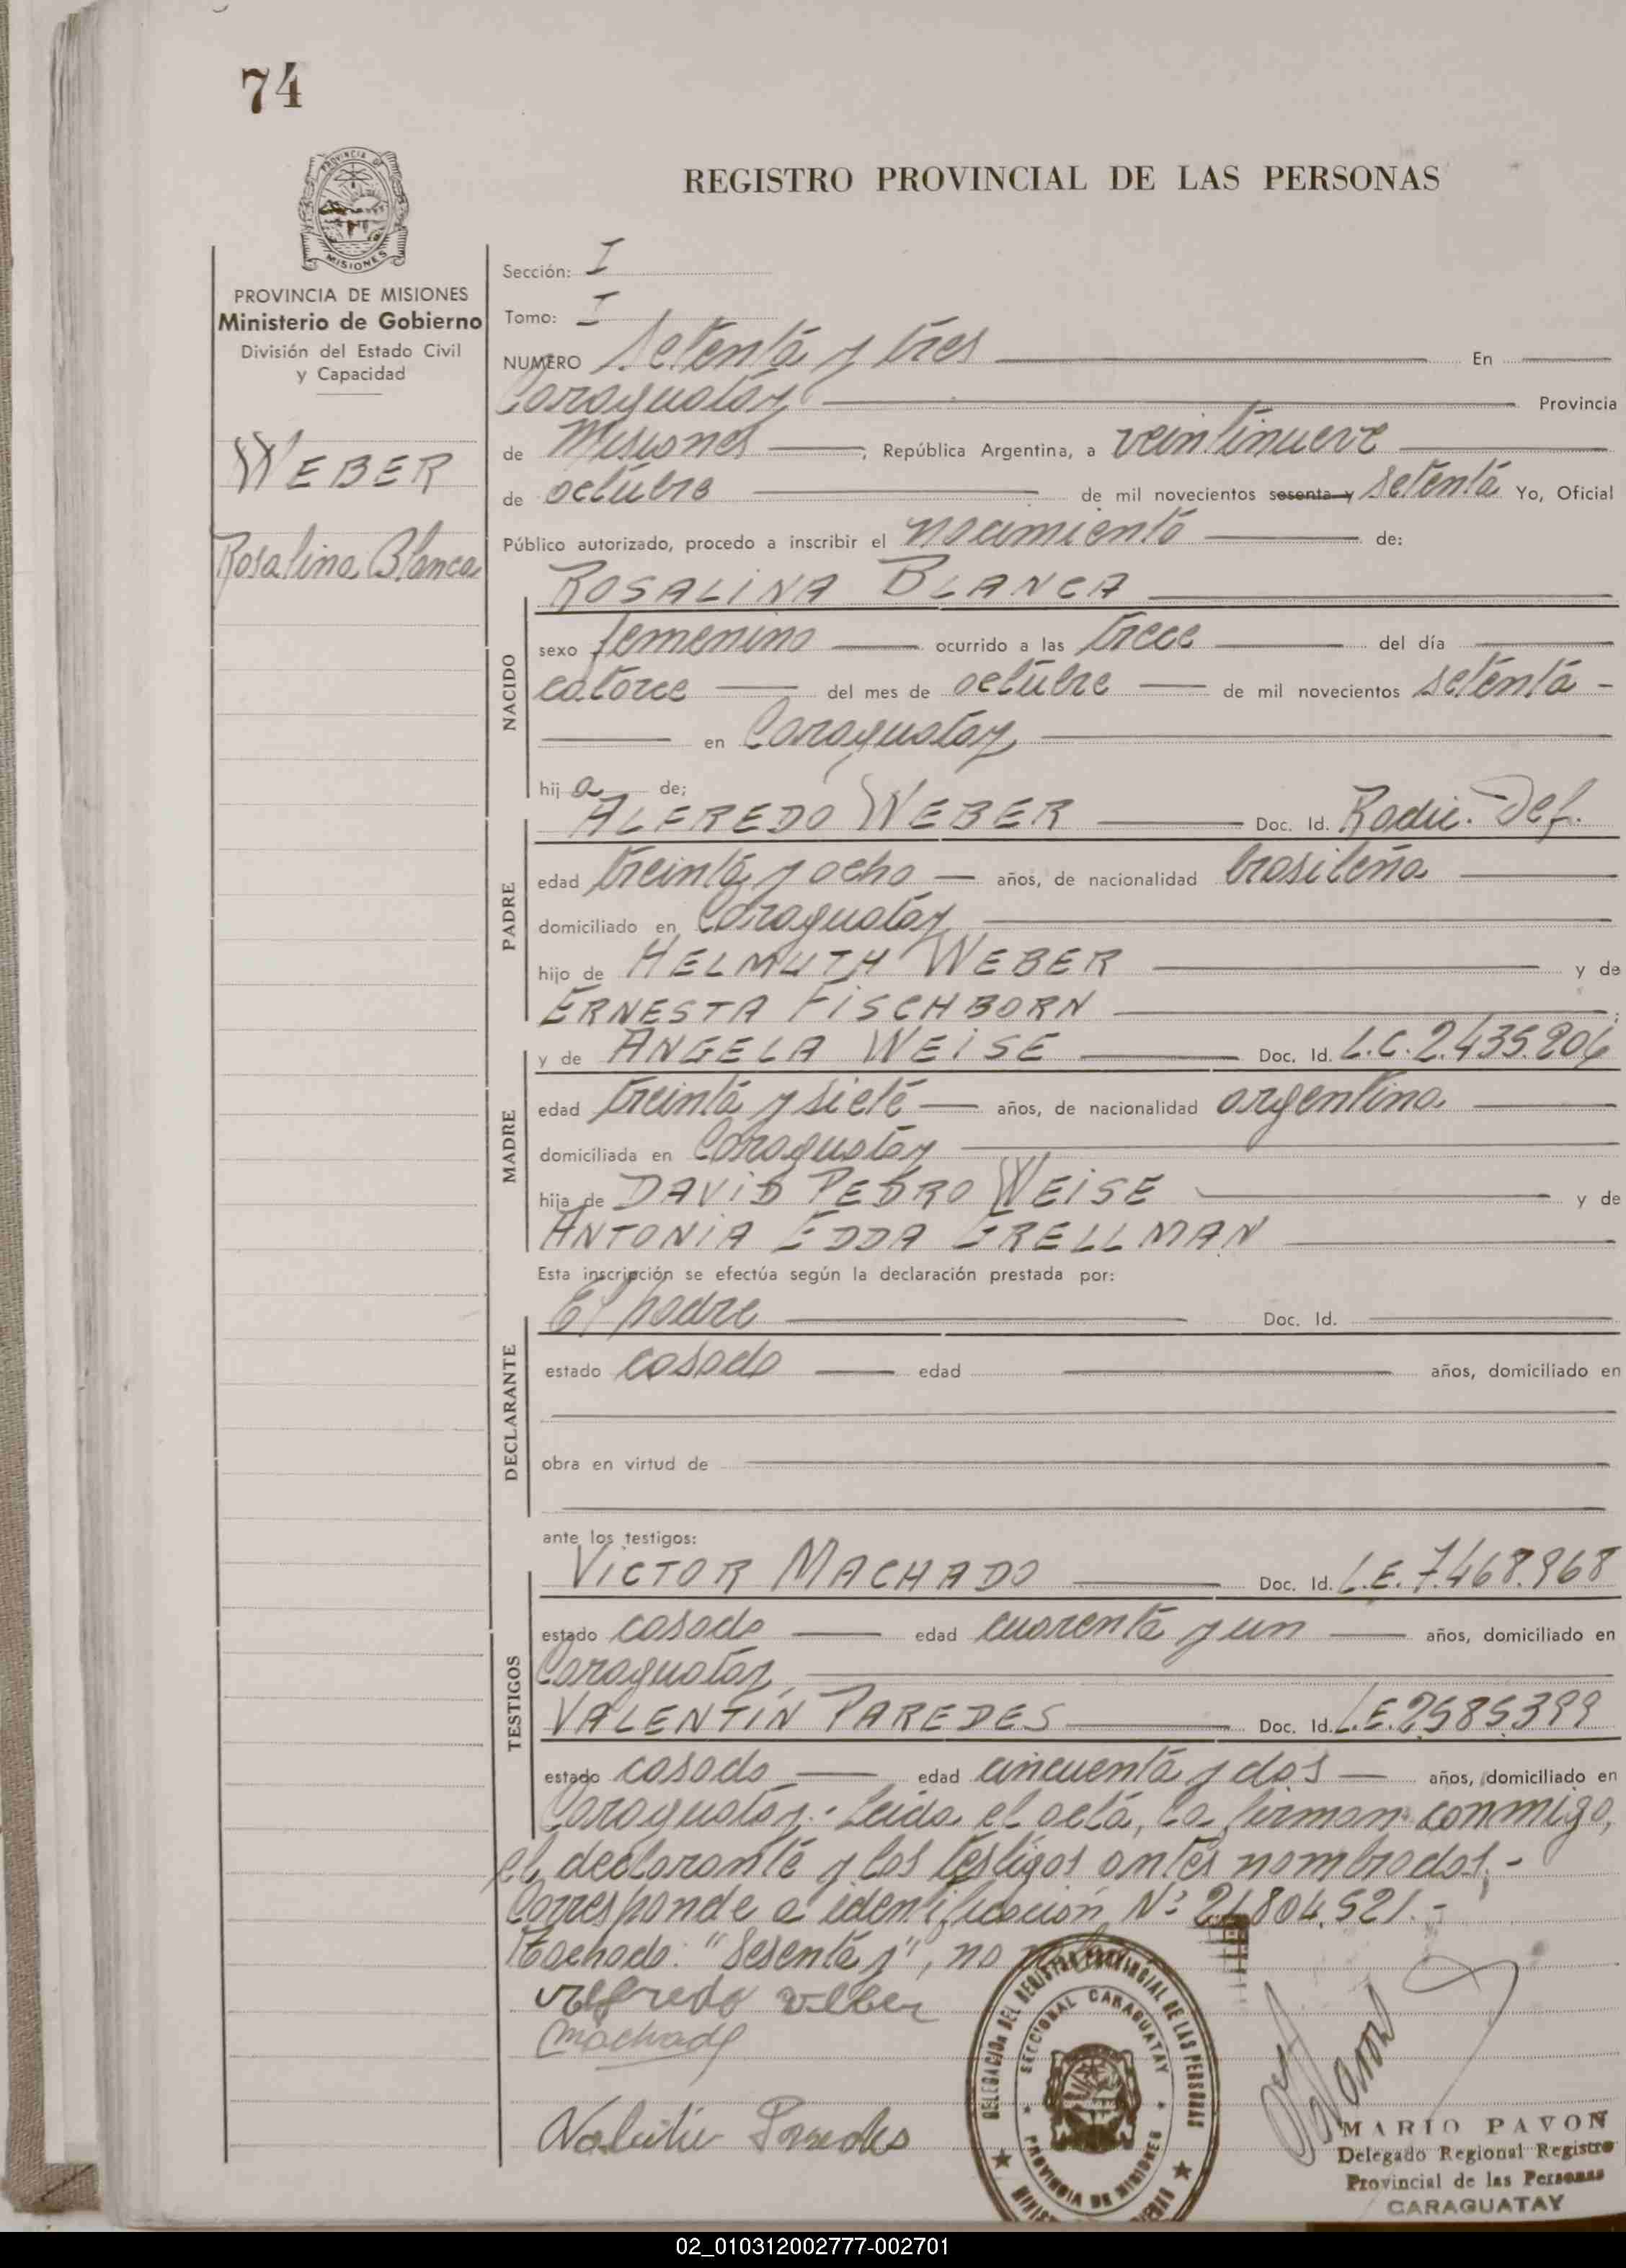 74
PROVINCIA DE
MISIONES
REGISTRO PROVINCIAL DE LAS PERSONAS
PROVINCIA DE MISIONES
Ministerio de Gobierno
División del Estado Civil
y Capacidad
WEBER
Rosalina Blanca
Sección: I
Tomo: I
NUMERO Setenta y tres En
Caraguatay Provincia
de Misiones, República Argentina, a veintinueve
de octubre de mil novecientos sesenta y setenta Yo, Oficial
Público autorizado, procedo a inscribir el nacimiento de:
NACIDO
ROSALINA BLANCA
sexo femenino ocurrido a las trece del día
catorce del mes de octubre de mil novecientos setenta -
en Caraguatay
hij a de:
PADRE
ALFREDO WEBER Doc. Id. Radic. Def.
edad treinta y ocho años, de nacionalidad brasileña
domiciliado en Caraguatay
hijo de HELMUTH WEBER y de
ERNESTA FISCHBORN ;
MADRE
y de ANGELA WEISE Doc. Id. L.C. 2.435.206
edad treinta y siete años, de nacionalidad argentina
domiciliada en Caraguatay
hija de DAVID PEDRO WEISE y de
ANTONIA EDDA GRELLMAN
Esta inscripción se efectúa según la declaración prestada por:
DECLARANTE
El padre Doc. Id.
estado casado edad años, domiciliado en
obra en virtud de
ante los testigos:
TESTIGOS
VICTOR MACHADO Doc. Id. L.E. 7.468.968
estado casado edad cuarenta y un años, domiciliado en
Caraguatay
VALENTÍN PAREDES Doc. Id. L.E. 2585.399
estado casado edad cincuenta y dos años, domiciliado en
Caraguatay.- Leida el acta, la firman conmigo,
el declarante y los testigos antes nombrados.-
Corresponde a identificación Nº 21.804.521.-
Tachado: "Sesenta y", no vale
Alfredo Weber
Machado
Valentin Paredes
DELEGACION DEL REGISTRO PROVINCIAL DE LAS PERSONAS
SECCIONAL CARAGUATAY
PROVINCIA DE MISIONES
MPavon
MARIO PAVON
Delegado Regional Registro
Provincial de las Personas
CARAGUATAY
02_010312002777-002701